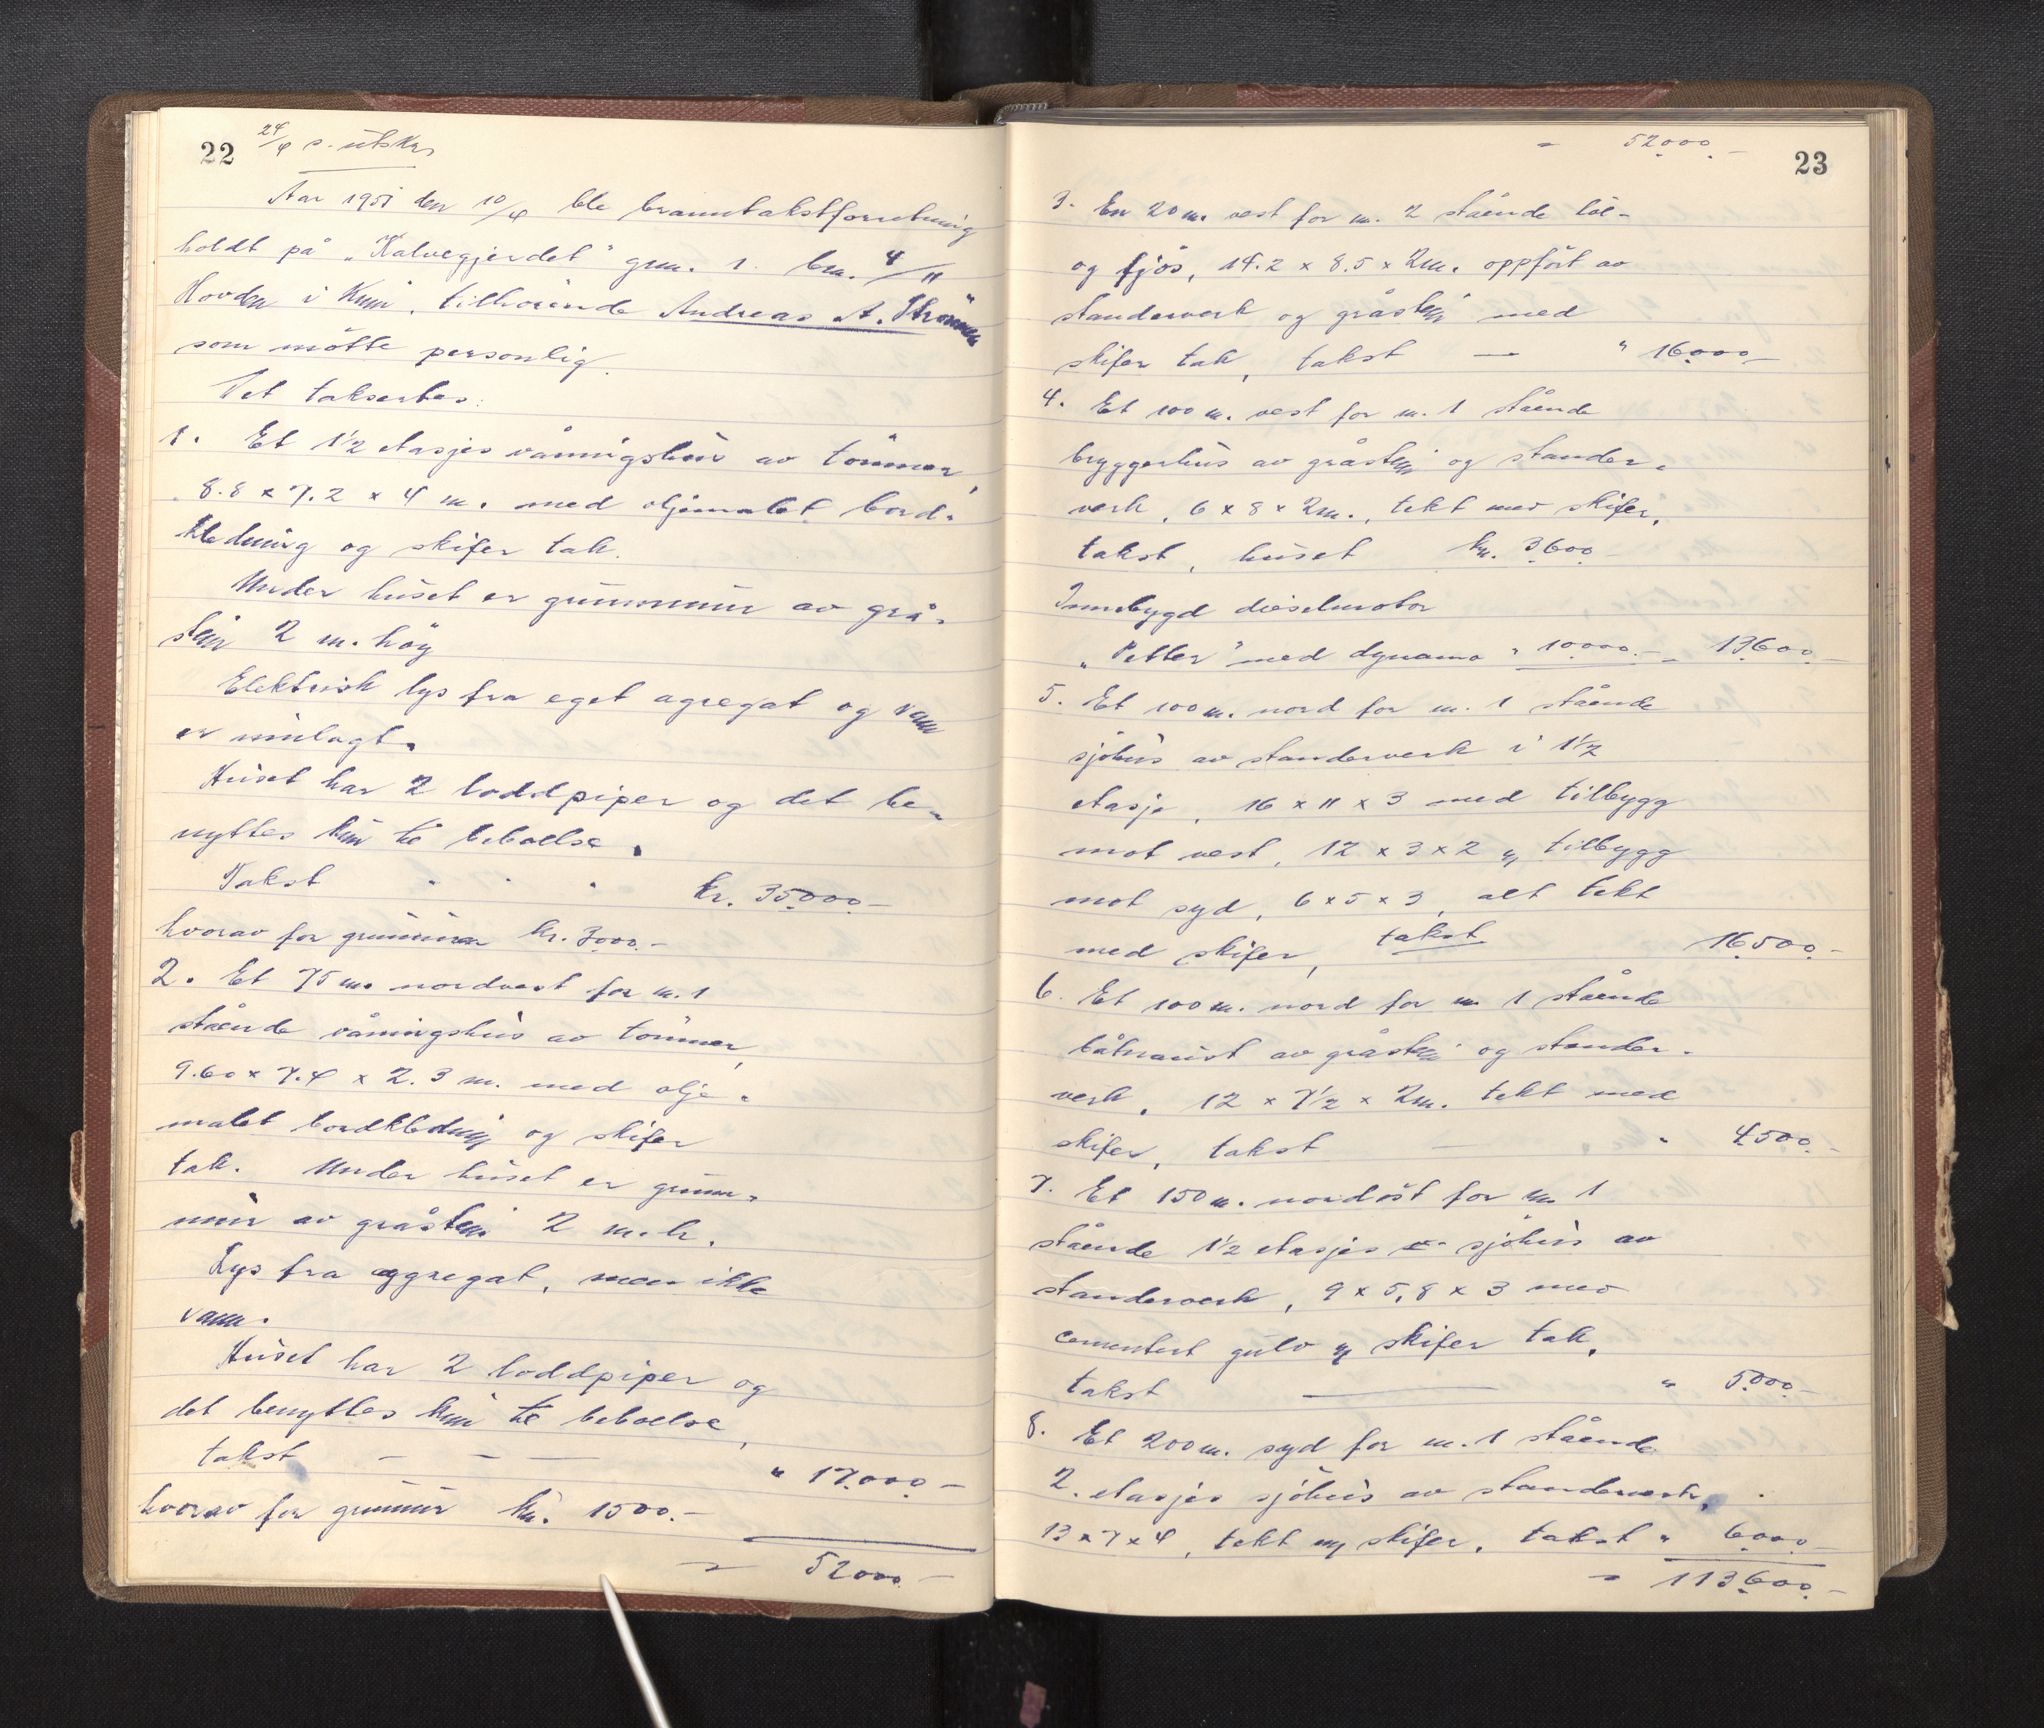 22 24/4 s. utskr.
Aar 1951 den 10/4 ble branntakstforretning
holdt på „Kalvegjerdet" gnr. 1. bnr. 4/11
Hovden i Kinn, tilhørende Andreas A. Strømmen
som møtte personlig.
Det takserbes:
1. Et 1½ etasjes våningshus av tömmer,
8.8 x 7.2 x 4 m. med oljemalet bord-
kledning og skifer tak.
Under huset er grunnmur av grå-
stein 2 m. høy
Elektrisk lys fra eget agregat og vann
er innlagt.
Huset har 2 loddpiper og det be-
nyttes kun til beboelse.
Takst " " " kr. 35000.-
hvorav for grunnmur kr. 3000.-
2. Et 75 m. nordvest for nr. 1
stående våningshus av tömmer,
9.60 x 7.4 x 2.3 m. med olje-
malet bordkledning og skifer
tak. Under huset er grunn-
mur av gråstein 2 m. h.
Lys fra aggregat, men ikke
vann.
Huset har 2 loddpiper og
det benyttes kun til beboelse,
takst - - - " 17.000.-
hvorav for grunnmur kr. 1500.-
= 52000.-
23
= 52000.-
3. En 20 m. vest for nr. 2 stående löe-
og fjös, 14.2 x 8.5 x 2 m. oppfört av
standerverk og gråstein med
skifer tak, takst — " 16000.-
4. Et 100 m. vest for nr. 1 stående
bryggerhus av gråstein og stander-
verk, 6 x 8 x 2 m., tekt med skifer,
takst, huset kr. 3600.-
Innebygd dieselmotor
„Petter" med dynamo " 10000.- = 13600.-
5. Et 100 m. nord for nr. 1 stående
sjöhus av standerverk i 1½
etasje, 16 x 11 x 3 med tilbygg
mot vest, 12 x 3 x 2 og tilbygg
mot syd, 6 x 5 x 3, alt tekt
med skifer, takst 16500.-
6. Et 100 m. nord for nr 1 stående
båtnaust av gråstein og stander-
verk, 12 x 7½ x 2 m. tekt med
skifer, takst — " 4500.-
7. Et 150 m. nordöst for nr 1
stående 1½ etasjes sjöhus av
standerverk, 9 x 5,8 x 3 med
cementert gulv og skifer tak,
takst — " 5000.-
8. Et 200 m. syd for nr. 1 stående
2. etasjes sjöhus av standerverk,
13 x 7 x 4, tekt m/ skifer, takst " 6000.-
= 113600.-